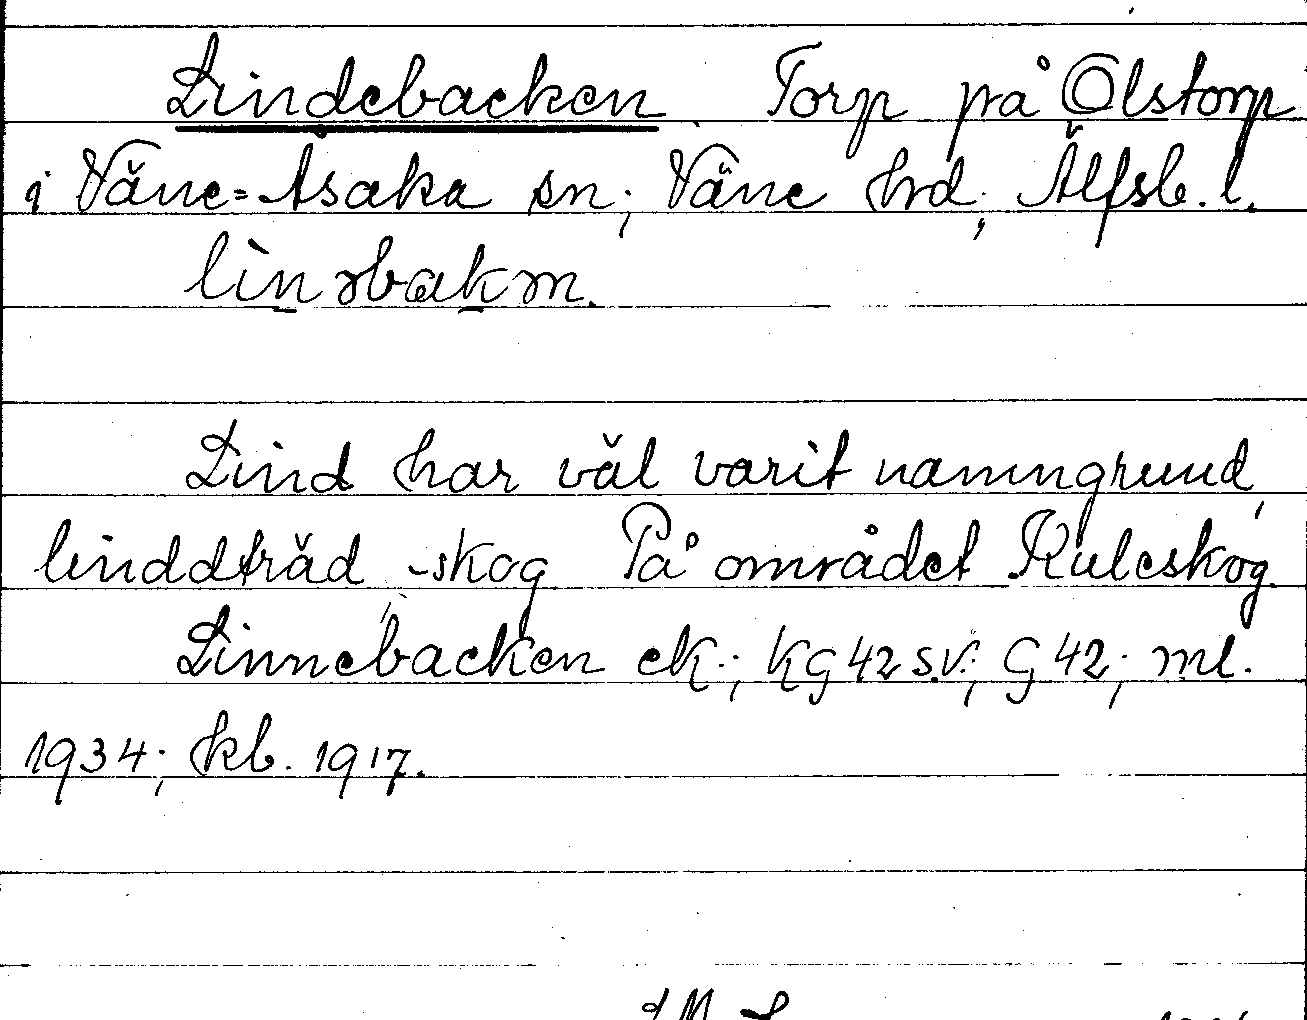 Lindebacken. Torp på Olstorp
i Väne-Åsaka sn; Väne hrd; Älfsb. l.
linəbakən.
Lind har väl varit namngrund,
linddträd, -skog. På området Kuleskog.
Linnebacken ek.; KG 42 s.v.; G 42; ml.
1934; kb. 1917.